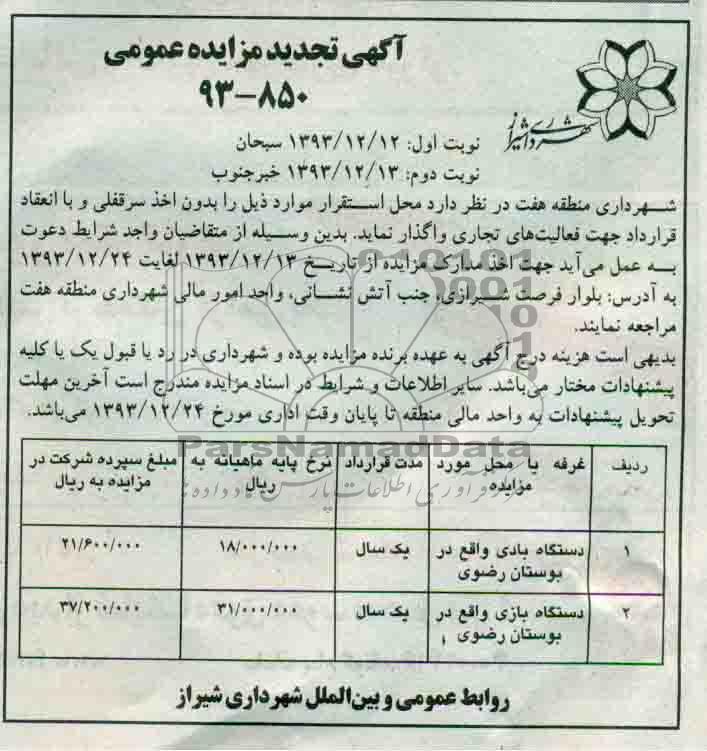 آگهی تجدید مزایده عمومی
۹۳-۸۵۰
شهرداری شیراز
نوبت اول: ۱۳۹۳/۱۲/۱۲ سبحان
نوبت دوم: ۱۳۹۳/۱۲/۱۳ خبرجنوب
شهرداری منطقه هفت در نظر دارد محل استقرار موارد ذیل را بدون اخذ سرقفلی و با انعقاد
قرارداد جهت فعالیت‌های تجاری واگذار نماید. بدین وسیله از متقاضیان واجد شرایط دعوت
به عمل می‌آید جهت اخذ مدارک مزایده از تاریخ ۱۳۹۳/۱۲/۱۳ لغایت ۱۳۹۳/۱۲/۲۴
به آدرس: بلوار فرصت شیرازی، جنب آتش نشانی، واحد امور مالی شهرداری منطقه هفت
مراجعه نمایند.
بدیهی است هزینه درج آگهی به عهده برنده مزایده بوده و شهرداری در رد یا قبول یک یا کلیه
پیشنهادات مختار می‌باشد. سایر اطلاعات و شرایط در اسناد مزایده مندرج است آخرین مهلت
تحویل پیشنهادات به واحد مالی منطقه تا پایان وقت اداری مورخ ۱۳۹۳/۱۲/۲۴ می‌باشد.
ParsNamadData
ردیف غرفه یا محل مورد مزایده مدت قرارداد نرخ پایه ماهیانه به ریال مبلغ سپرده شرکت در مزایده به ریال
۱ دستگاه بادی واقع در بوستان رضوی یک سال ۱۸/۰۰۰/۰۰۰ ۲۱/۶۰۰/۰۰۰
۲ دستگاه بازی واقع در بوستان رضوی ۱ یک سال ۳۱/۰۰۰/۰۰۰ ۳۷/۲۰۰/۰۰۰
روابط عمومی و بین‌الملل شهرداری شیراز